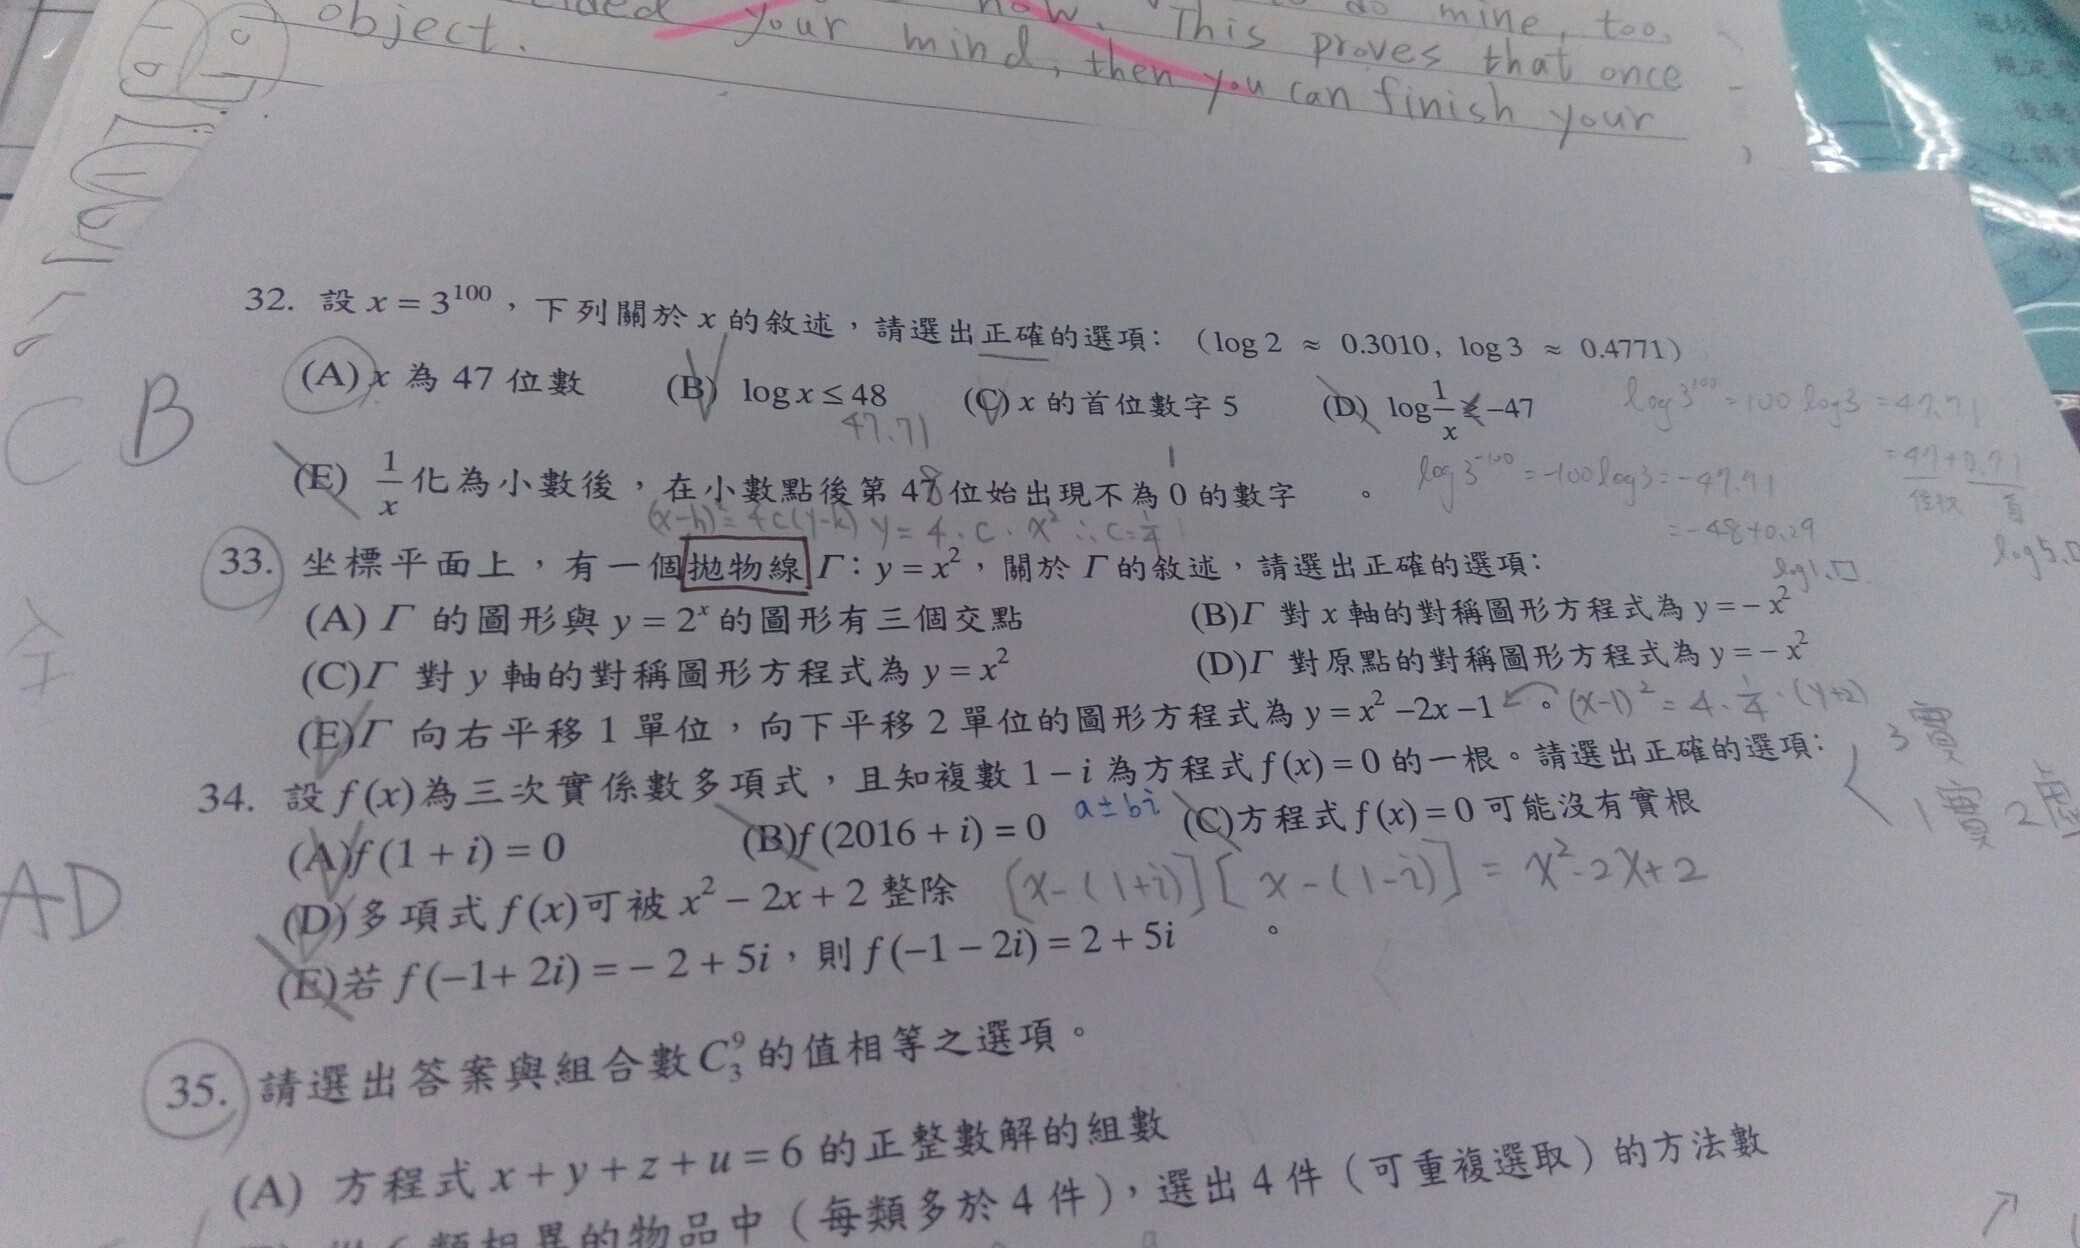 object.
your mind, then you can finish your
now. This proves that once
do mine, too,
32. 設 x = 3^100，下列關於 x 的敘述，請選出正確的選項：（log 2 ≈ 0.3010, log 3 ≈ 0.4771）
(A) x 為 47 位數 (B) log x ≤ 48 (C) x 的首位數字 5 (D) log 1/x ≤ -47
47.71
log3^100 = 100 log3 = 47.71
= 47+0.71
C B
(E) 1/x 化為小數後，在小數點後第 48 位始出現不為 0 的數字。
log3^-100 = -100log3 = -47.71
= -48+0.29
(x-h)² = 4c(y-k) y = 4·c·x² ∴c=1/4
33. 坐標平面上，有一個拋物線 Γ：y = x²，關於 Γ 的敘述，請選出正確的選項：
(A) Γ 的圖形與 y = 2^x 的圖形有三個交點 (B)Γ 對 x 軸的對稱圖形方程式為 y = − x²
(C)Γ 對 y 軸的對稱圖形方程式為 y = x² (D)Γ 對原點的對稱圖形方程式為 y = − x²
全
(E)Γ 向右平移 1 單位，向下平移 2 單位的圖形方程式為 y = x² −2x −1。
(x-1)² = 4·1/4·(y+2)
34. 設 f(x)為三次實係數多項式，且知複數 1 − i 為方程式 f(x) = 0 的一根。請選出正確的選項：
3實
1實2虛
(A)f(1 + i) = 0 (B)f(2016 + i) = 0 a±bi (C)方程式 f(x) = 0 可能沒有實根
AD
(D)多項式 f(x)可被 x² − 2x + 2 整除 [x-(1+i)][x-(1-i)] = x²-2x+2
(E)若 f(−1+ 2i) = − 2 + 5i，則 f(−1 − 2i) = 2 + 5i。
35. 請選出答案與組合數 C^9_3 的值相等之選項。
(A) 方程式 x + y + z + u = 6 的正整數解的組數
類相異的物品中（每類多於 4 件），選出 4 件（可重複選取）的方法數